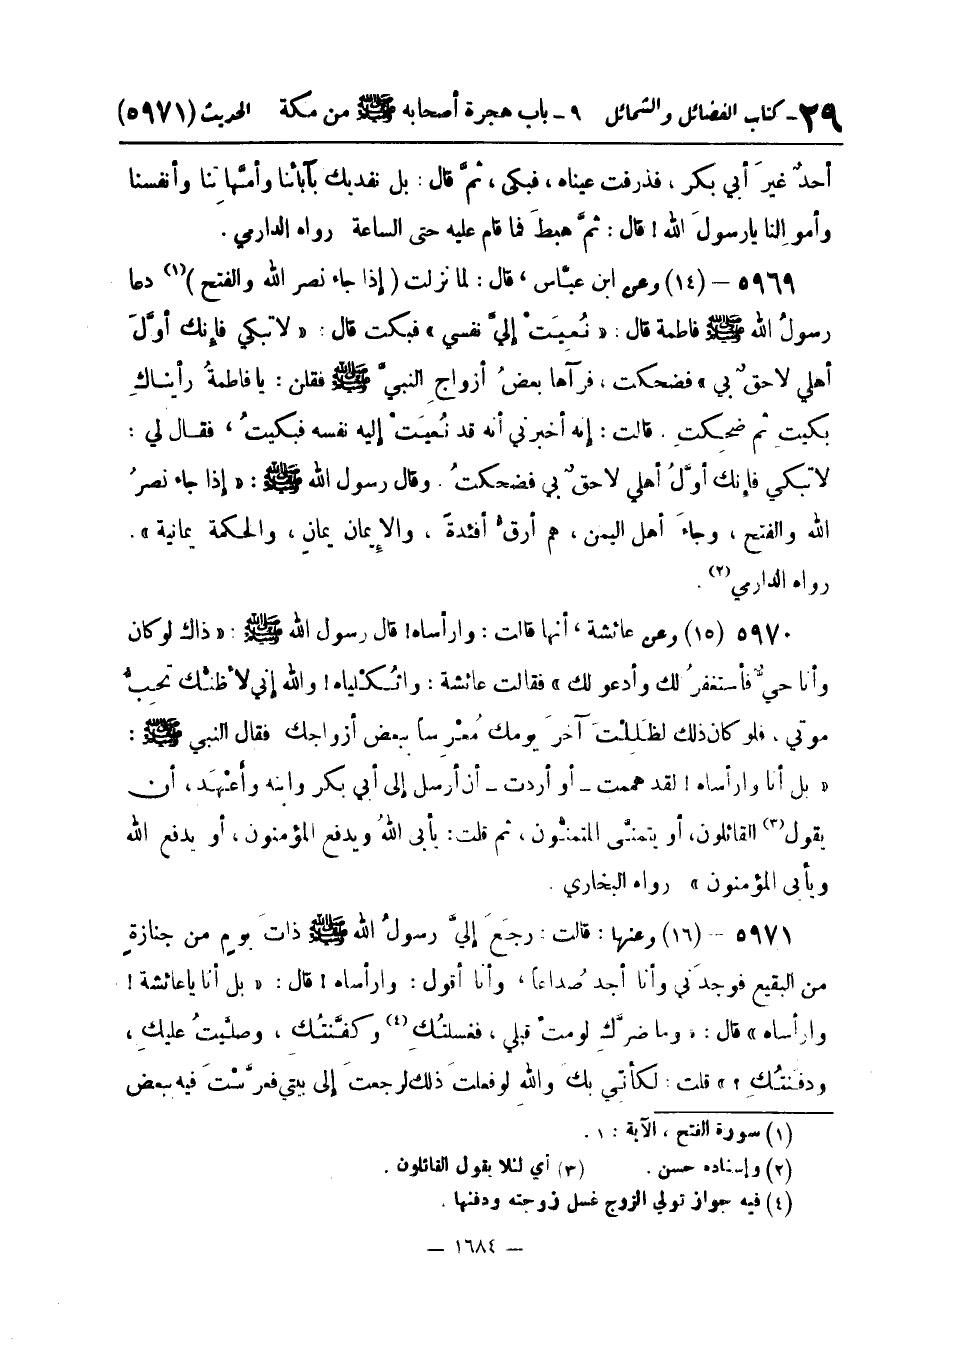 ٢٩- كتاب الفضائل والشمائل ٩ - باب هجرة أصحابه ﷺ من مكة الحديث (٥٩٧١)
أحدٌ غيرَ أبي بكر ، فذرفت عيناه ، فبكى ، ثمَّ قال : بل نفديك بآبائنا وأمَّهاتِنا وأنفسنا
وأموالِنا يارسولَ الله ! قال : ثمَّ هبطَ فما قام عليه حتى الساعة رواه الدارمي .
٥٩٦٩ - (١٤) وعن ابن عبَّاس ، قال : لما نزلت ( إذا جاء نصر الله والفتح )(١) دعا
رسولُ الله ﷺ فاطمة قال : « نُعيَتْ إليَّ نفسي » فبكت قال : « لاتبكي فإنك أوَّلَ
أهلي لاحقٌ بي » فضحكت ، فرآها بعضُ أزواجِ النبيِّ ﷺ فقلن : يافاطمةُ رأيناكِ
بكيتِ ثم ضحِكتِ . قالت : إنه أخبرني أنه قد نُعيَتْ إليه نفسه فبكيتُ ، فقال لي :
لاتبكي فإنك أوَّلُ أهلي لاحقٌ بي فضحكتُ . وقال رسول الله ﷺ : « إذا جاء نصرُ
الله والفتح ، وجاءَ أهل اليمن ، هم أرقُّ أفئدةً ، والإيمان يمانٍ ، والحكمة يمانية » .
رواه الدارمي(٢) .
٥٩٧٠ (١٥) وعن عائشة ، أنها قالت : وارأساه! قال رسول الله ﷺ : « ذاك لوكان
وأنا حيٌّ فأستغفرُ لك وأدعو لك » فقالت عائشة : واثُكْلياه ! والله إني لأظنُّك تحبُّ
موتي ، فلو كان ذلك لظَلِلْتَ آخرَ يومك مُعْرِساً ببعض أزواجك فقال النبي ﷺ :
« بل أنا وارأساه ! لقد هممت - أو أردت - أن أرسل إلى أبي بكر وابنه وأعْهَدَ ، أن
يقول(٣) القائلون، أو يتمنَّى المتمنُّون ، ثم قلت: يأبى اللهُ ويدفع المؤمنون ، أو يدفع الله
ويأبى المؤمنون » رواه البخاري .
٥٩٧١ - (١٦) وعنها : قالت : رجَعَ إليَّ رسولُ الله ﷺ ذاتَ يومٍ من جنازةٍ
من البقيع فوجدَني وأنا أجد صُداعاً ، وأنا أقول : وارأساه ! قال : « بل أنا ياعائشة !
وارأساه » قال : « وماضرَّكِ لومتْ قبلي ، فغسلتُكِ(٤) وكفَّنتُكِ ، وصلَّيتُ عليكِ ،
ودفنتُكِ ؟ » قلت : لكأنّي بكَ واللهِ لوفعلتَ ذلك لرجعتَ إلى بيتي فعرَّستَ فيه ببعض
(١) سورة الفتح ، الآية : ١ .
(٢) وإسناده حسن . (٣) أي لئلا يقول القائلون .
(٤) فيه جواز تولي الزوج غسل زوجته ودفنها .
— ١٦٨٤ —